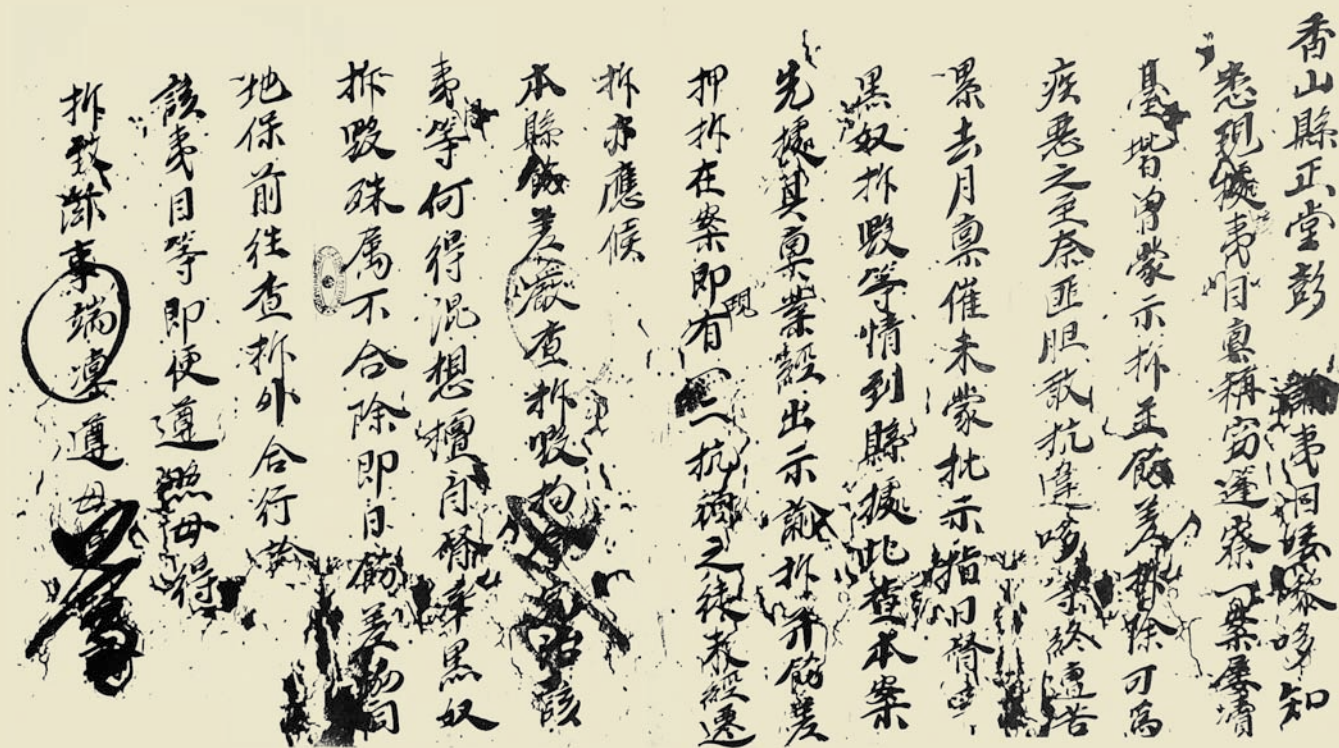 香山縣正堂彭 諭夷目喽嚟哆知
悉現據夷目稟稱窃蓬寮一案屢瀆
臺堦曾蒙示拆並飭差督除可為
疾惡之至奈匪胆敢抗違哆等終遭苦
累去月稟催未蒙批示指日督
黑奴拆毀等情到縣據此查本案
先據具稟業經出示諭拆并飭差
押拆在案即有現一二抗頑之徒未經遷
拆亦應候
本縣飭差嚴查拆毀拘究治該
夷等何得混想擅自督率黑奴
拆毀殊属不合除即日飭差協同
地保前往查拆外合行諭
該夷目等即便遵照毋得
拆致滋事端凛遵毋